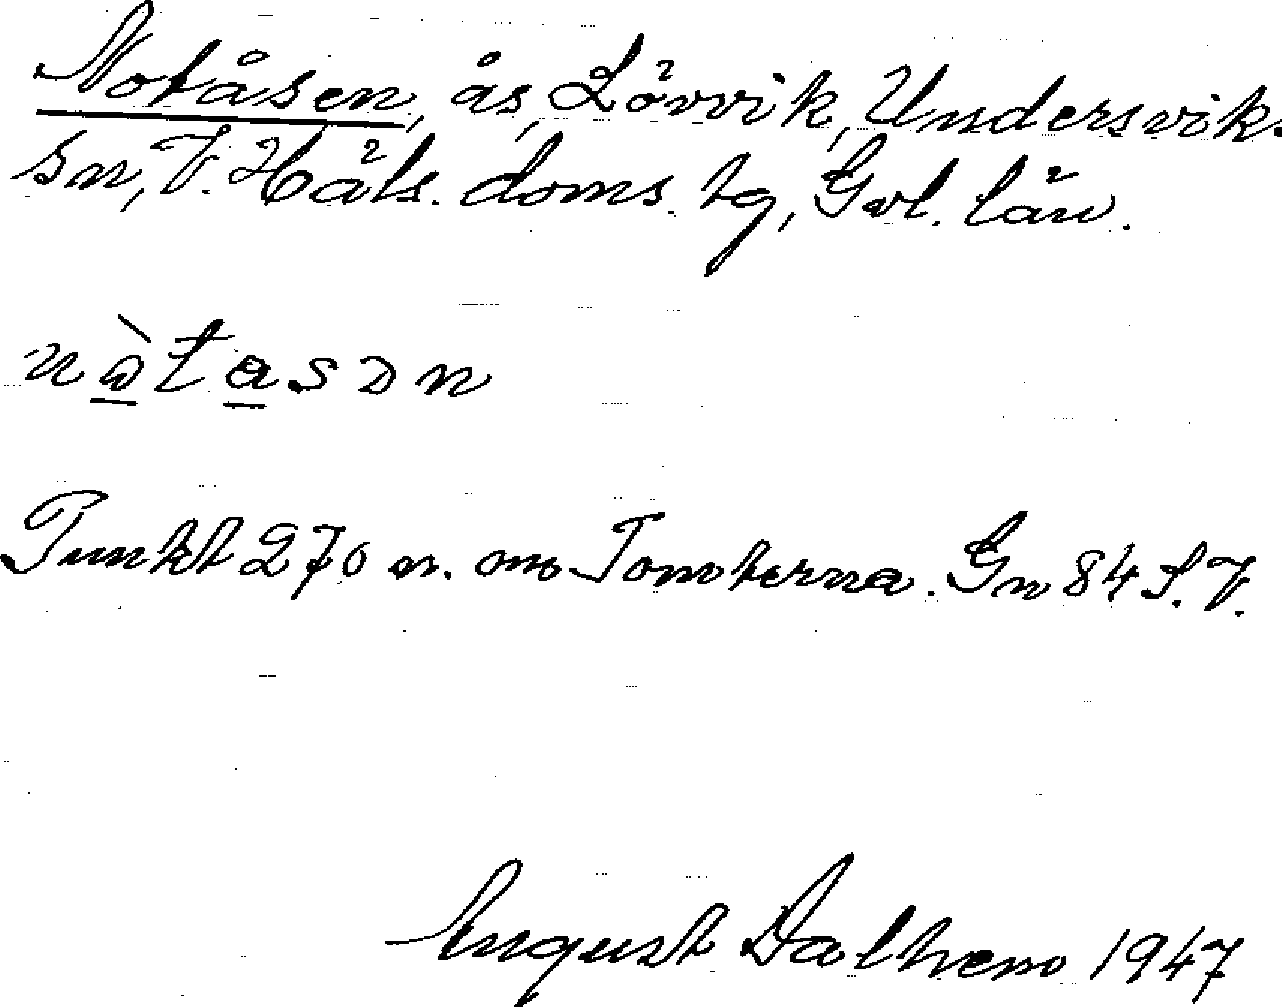 Notåsen, ås, Lövvik, Undersviks
sn, V. Häls. doms. tg, Gvl. län.
Punkt 270 n. om Tomterna. Gn 84 S.V.
August Dalhem 1947